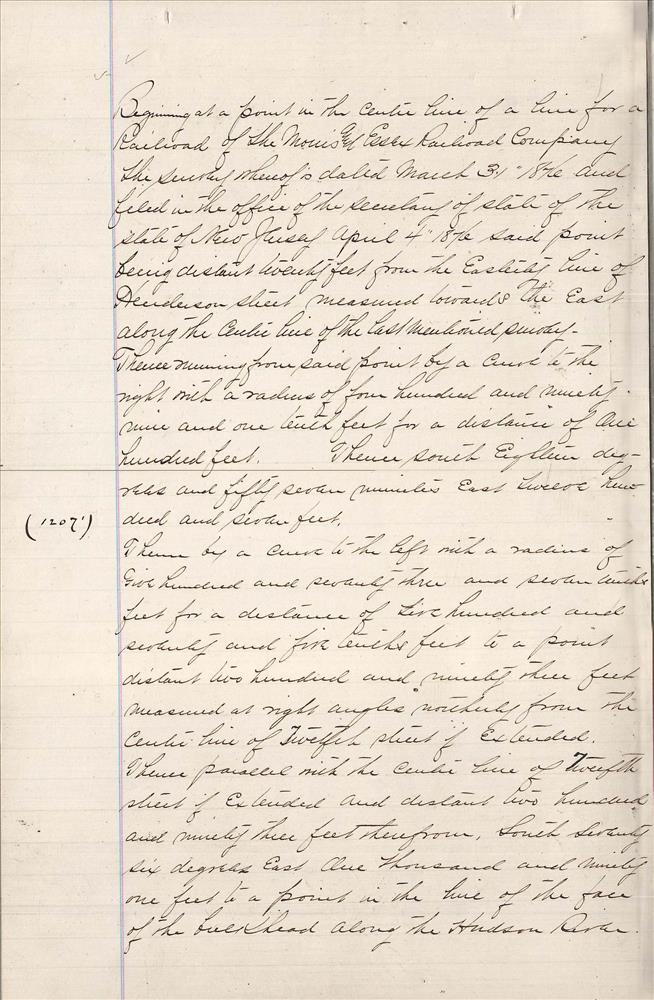 Beginning at a point in the centre line of a line for a
Railroad of the Morris and Essex Railroad Company
the survey whereof is dated March 31" 1876 and
filed in the office of the secretary of state of the
state of New Jersey April 4" 1876 said point
being distant twenty feet from the Easterly line of
Henderson street measured towards the East
along the Centre line of the last mentioned survey-
Thence running from said point by a curve to the
right with a radius of four hundred and ninety-
nine and one tenth feet for a distance of One
hundred feet. Thence south Eighteen deg-
rees and fifty seven minutes East twelve hun-
(1207') dred and seven feet.
Thence by a curve to the left with a radius of
Five hundred and seventy three and seven tenths
feet for a distance of five hundred and
seventy and five tenths feet to a point
distant two hundred and ninety three feet
measured at right angles northerly from the
Centre line of Twelfth street if Extended.
Thence parallel with the centre line of Twelfth
street if Extended and distant two hundred
and ninety three feet therefrom, South seventy
six degrees East One thousand and ninety
one feet to a point in the line of the face
of the bulkhead along the Hudson River.